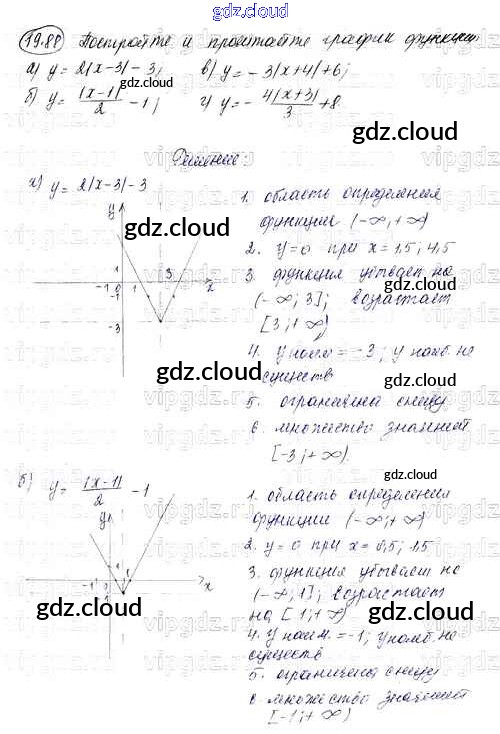 gdz.cloud
19.88 Постройте и прочитайте график функции
а) y = 2|x-3| - 3; в) y = -3|x+4| + 6;
б) y = |x-1|/2 - 1; г) y = - 4|x+3|/3 + 8.
gdz.cloud
gdz.cloud
Решение:
а) y = 2|x-3| - 3
1. область определения
функции (-∞; +∞)
2. y=0 при x = 1,5; 4,5
3. функция убывает на
(-∞; 3]; возрастает
[3; +∞)
4. y наим = -3; y наиб. не
существ
5. ограничена снизу
6. множество значений
[-3; +∞).
y
1
-1 0 1 3 x
-1
-3
gdz.cloud
gdz.cloud
gdz.cloud
gdz.cloud
б) y = |x-1|/2 - 1
1. область определения
функции (-∞; +∞)
2. y=0 при x = 0,5; 1,5
3. функция убывает на
(-∞; 1]; возрастает
на [1; +∞)
4. y наим. = -1; y наиб. не
существ
5. ограничена снизу
6. множество значений
[-1; +∞)
y
1 1
-1 0 x
gdz.cloud
gdz.cloud
gdz.cloud
gdz.cloud
gdz.cloud